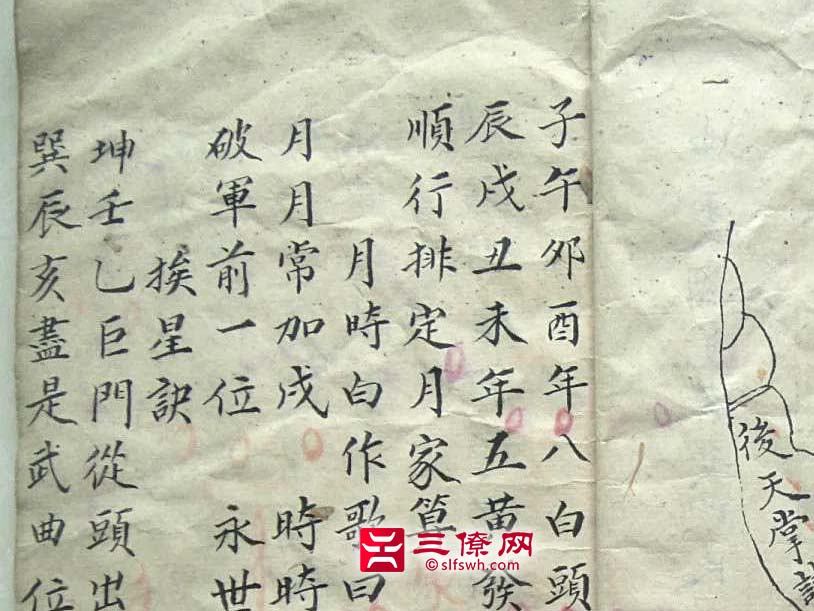 後天掌
子午卯酉年八白頭
辰戌丑未年五黃
順行排定月家算
月時白作歌曰
月月常加戌 時時
破軍前一位 永世
挨星訣
坤壬乙巨門從頭出
巽辰亥盡是武曲位
三僚网
©slfswh.com